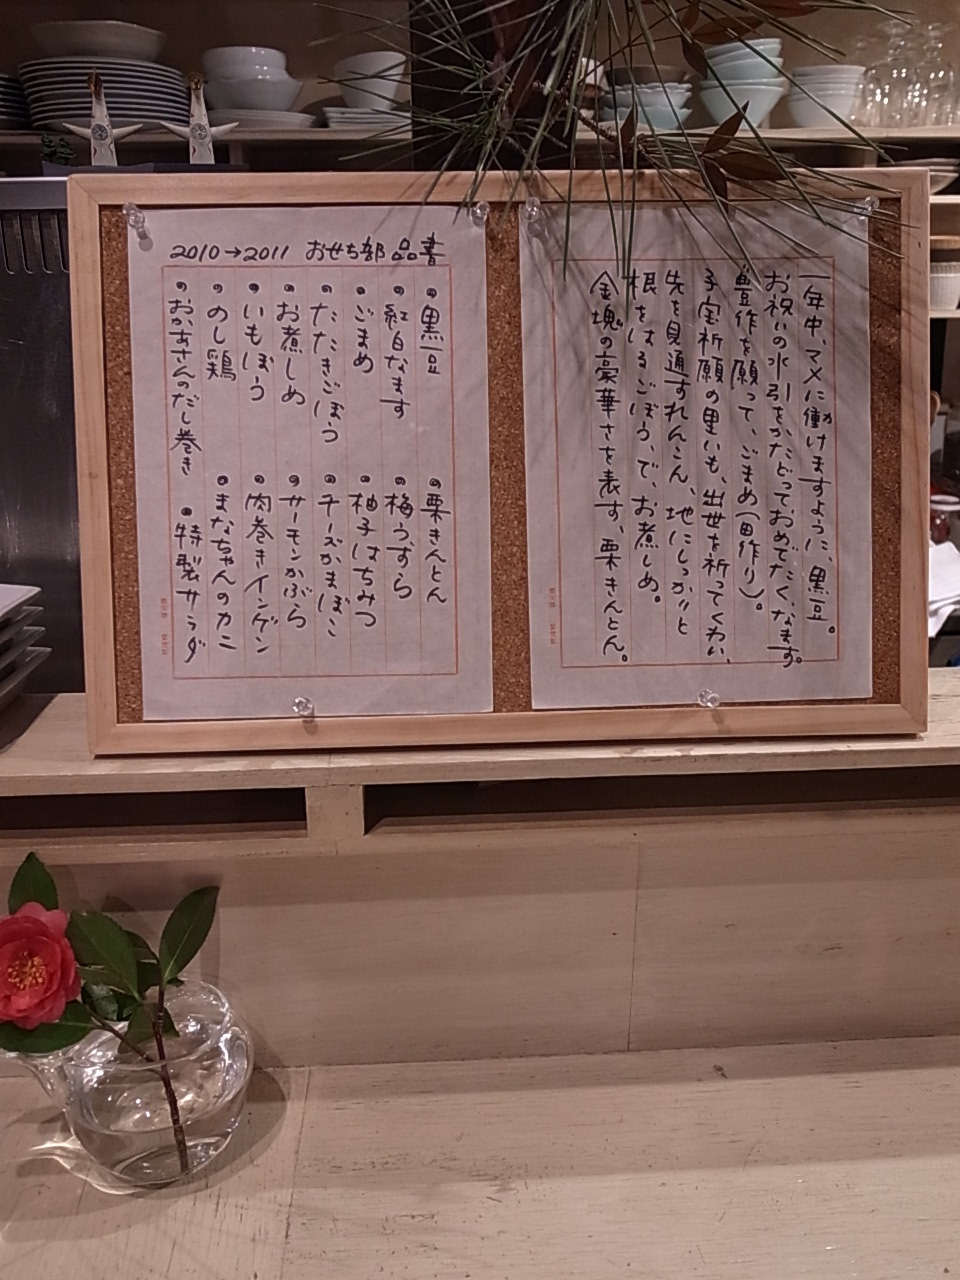 一年中、マメに働けますように、黒豆。
か
お祝いの水引をかたどっておめでたく、なます。
豊作を願って、ごまめ(田作り)。
子宝祈願の里いも、出世を祈ってくわい、
先を見通すれんこん、地にしっかりと
根をはるごぼう、で、お煮しめ。
金塊の豪華さを表す、栗きんとん。
2010→2011 おせち部 品書
黒豆
紅白なます
ごまめ
たたきごぼう
お煮しめ
いもぼう
のし鶏
おかあさんのだし巻き
栗きんとん
梅うずら
柚子はちみつ
チーズかまぼこ
サーモンかぶら
肉巻きインゲン
まなちゃんのカニ
特製サラダ